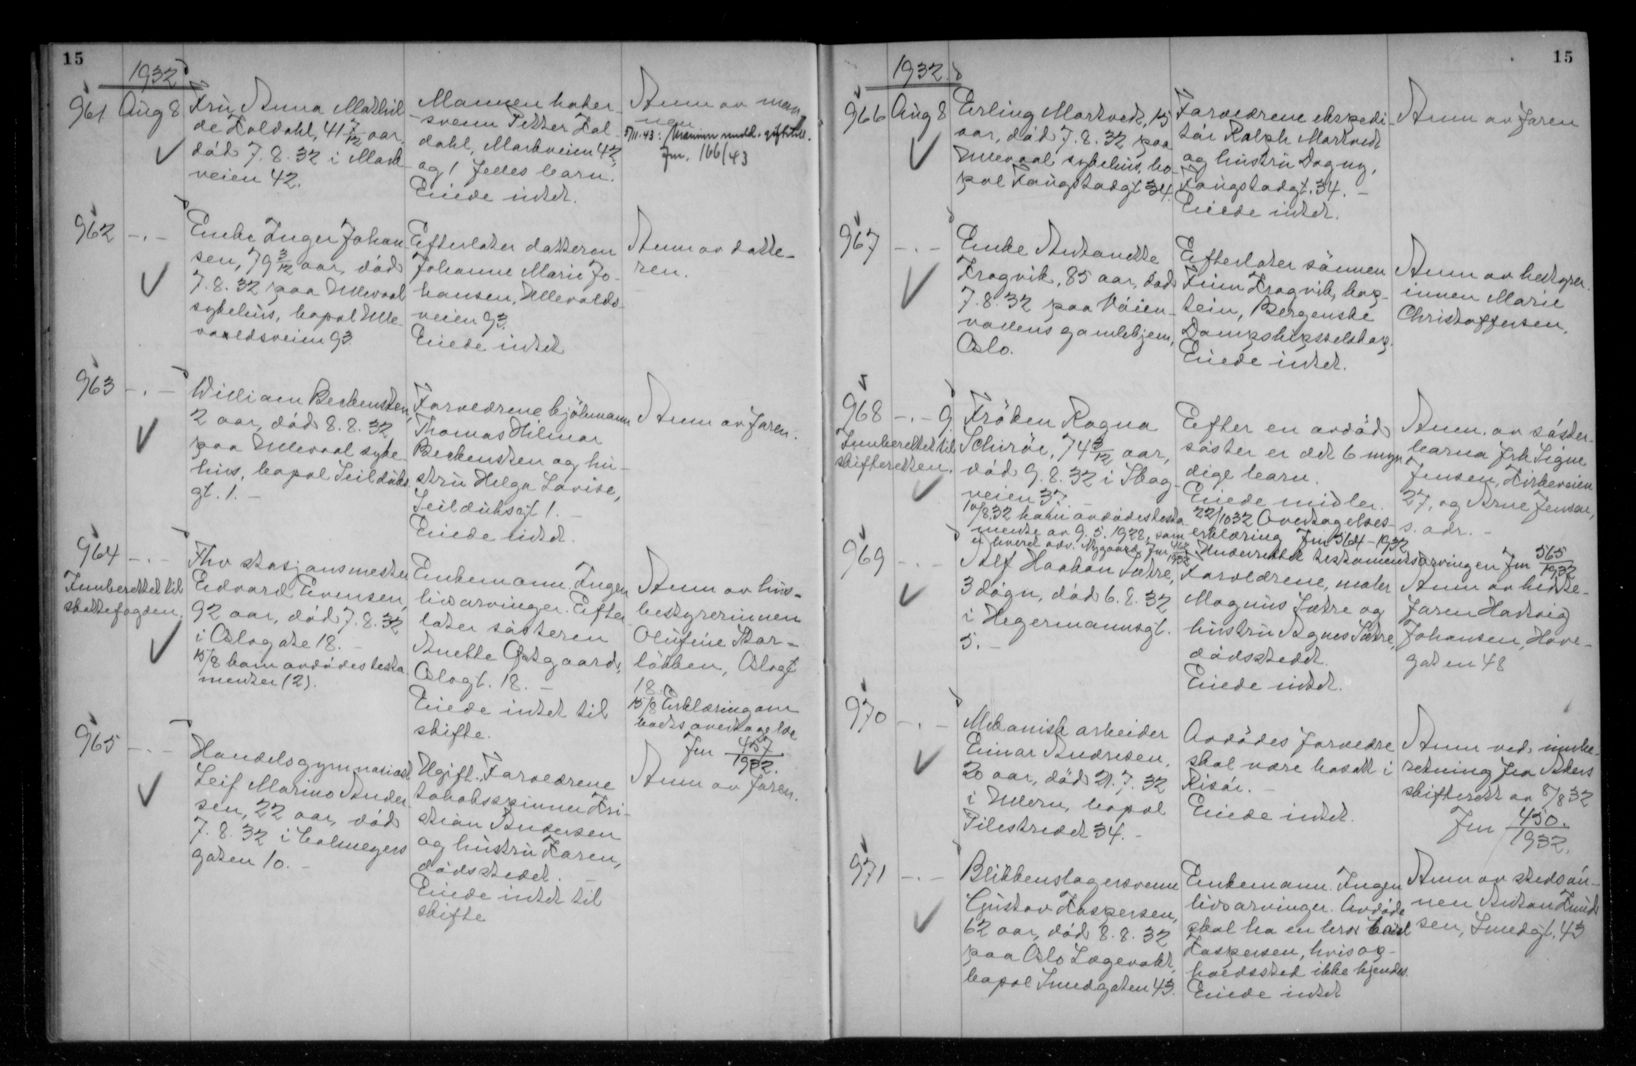 15
1932
961 Aug 8
Fru Anna Mathil
de Holdahl, 41 7/12 aar,
död 7.8.32 i Mark
veien 42.
Mannen hater
svenn Petter Hol
dahl, Markveien 42,
og 1 fedes barn.
Eiede intet.
Anm av man
nen
Jnr. 166/43
962 -.-
Enke Inger Johan
sen, 79 3/12 aar, död
7.8.32 paa Ullevaal
sykehus, bopæl Ulle
vaaldsveien 93
Efterlater datteren
Johanne Marie Jo-
hansen, Ullevolds-
veien 93.
Eiede intet
Anm av datte-
ren.
963 -.-
William Beckensten,
2 aar, död 8.8.32
paa Ullevaal syke
hus, bopæl Seilduks
gt. 1.-
Forældrene kjölmann
Thomas Hilmar
Beckensten og hu-
stru Helga Lovise,
Seilduksgt 1.-
Eiede intet.
Anm av faren.
964 -.-
Innberettet til
skattefogden.
Fhv stasjonsmester
Edvard Evensen,
92 aar, död 7.8.32
i Oslogate 18.-
15/8 kom avdödes testa
menter (2).
Enkemann. Ingen
livsarvinger. Efter
later sösteren
Anette Östgaard,
Oslogt. 18.-
Eiede intet til
skifte.
Anm av hus-
bestyrerinnen
Olufine Stor-
lökken, Oslogt
18.
15/8 Erklæring om
boets overtagelse
Jnr 457/1932.
965 -.-
Handelsgymnasiast
Leif Marino Ander
sen, 22 aar, död
7.8.32 i Colmeyers
gaten 10.-
Ugift. Forældrene
tobaksspinner Kri-
stian Andersen
og hustru Karen,
dödsstedet.-
Eiede intet til
skifte
Anm av faren.
15
1932
966 Aug 8
Erling Markved, 15
aar, död 7.8.32 paa
Ullevaal sykehus, bo-
pæl Fougstadgt 34.
Forældrene ekspedi-
tör Ralph Markved
og hustru Dagny,
Fougstadgt. 34.-
Eiede intet.
Anm av faren
967 -.-
Enke Antonette
Krogvik, 85 aar, död
7.8.32 paa Vöien-
vollens gamlehjem,
Oslo.
Efterlater sönnen
Finn Krogvik, kap-
tein, Bergenske
Dampskipsselskap.
Eiede intet.
Anm av bestyrer
innen Marie
Christoffersen.
968 -.- 9
Innberettet til
skifteretten.
Fröken Ragna
Schiröe, 74 3/12 aar,
död 9.8.32 i Skog-
veien 37.-
10/8.32 kom avdödes testa
mente av 9.5.1928, som
er leveret adv. Nygaard Jnr
Efter en avdöd
söster er det 6 myn
dige barn.
Eiede midler.
22/10 32 Overtagelses-
erklæring Jnr 564-1932
Underrettet testamentsarvingen Jnr 565/1932
Anm. av söster-
barna frk Signe
Jensen, Kirkeveien
27, og Arne Jensen,
s. adr.-
969 -.-
Rolf Haakon Sætre,
3 dögn, död 6.8.32
i Hegermannsgt.
5.-
Forældrene, maler
Magnus Sætre og
hustru Agnes Sætre,
dödsstedet.
Eiede intet.
Anm av beste-
faren Hartvig
Johansen, Have-
gaten 48
970 -.-
Mekanisk arbeider
Einar Andresen,
20 aar, död 21.7.32
i Ullern, bopæl
Pilestredet 34.-
Avdödes forældre
skal være bosatt i
Risör.-
Eiede intet.
Anm ved innbe-
retning fra Akers
skifterett av 8/8 32
Jnr 450/1932.
971 -.-
Blikkenslagersvenn
Gustav Kaspersen,
62 aar, död 8.8.32
paa Oslo Lægevakt,
bopæl Smedgaten 43.
Enkemann. Ingen
livsarvinger. Avdöde
skal ha en bror
Kaspersen, hvis op-
holdssted ikke kjendes.
Eiede intet
Anm av stedsön-
nen Anton Knud
sen, Smedgt. 43